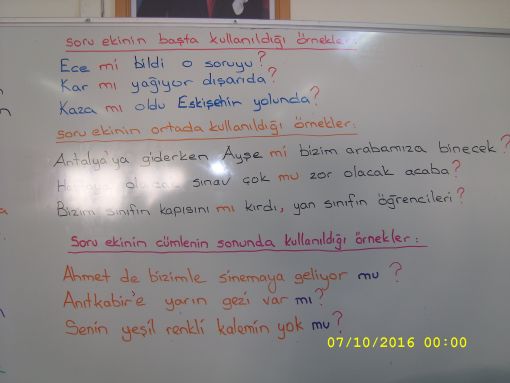 Soru ekinin başta kullanıldığı örnekler:
Ece mi bildi o soruyu?
Kar mı yağıyor dışarıda?
Kaza mı oldu Eskişehir yolunda?
Soru ekinin ortada kullanıldığı örnekler:
Antalya'ya giderken Ayşe mi bizim arabamıza binecek?
sınav çok mu zor olacak acaba?
Bizim sınıfın kapısını mı kırdı, yan sınıfın öğrencileri?
Soru ekinin cümlenin sonunda kullanıldığı örnekler:
Ahmet de bizimle sinemaya geliyor mu?
Anıtkabir'e yarın gezi var mı?
Senin yeşil renkli kalemin yok mu?
07/10/2016 00:00